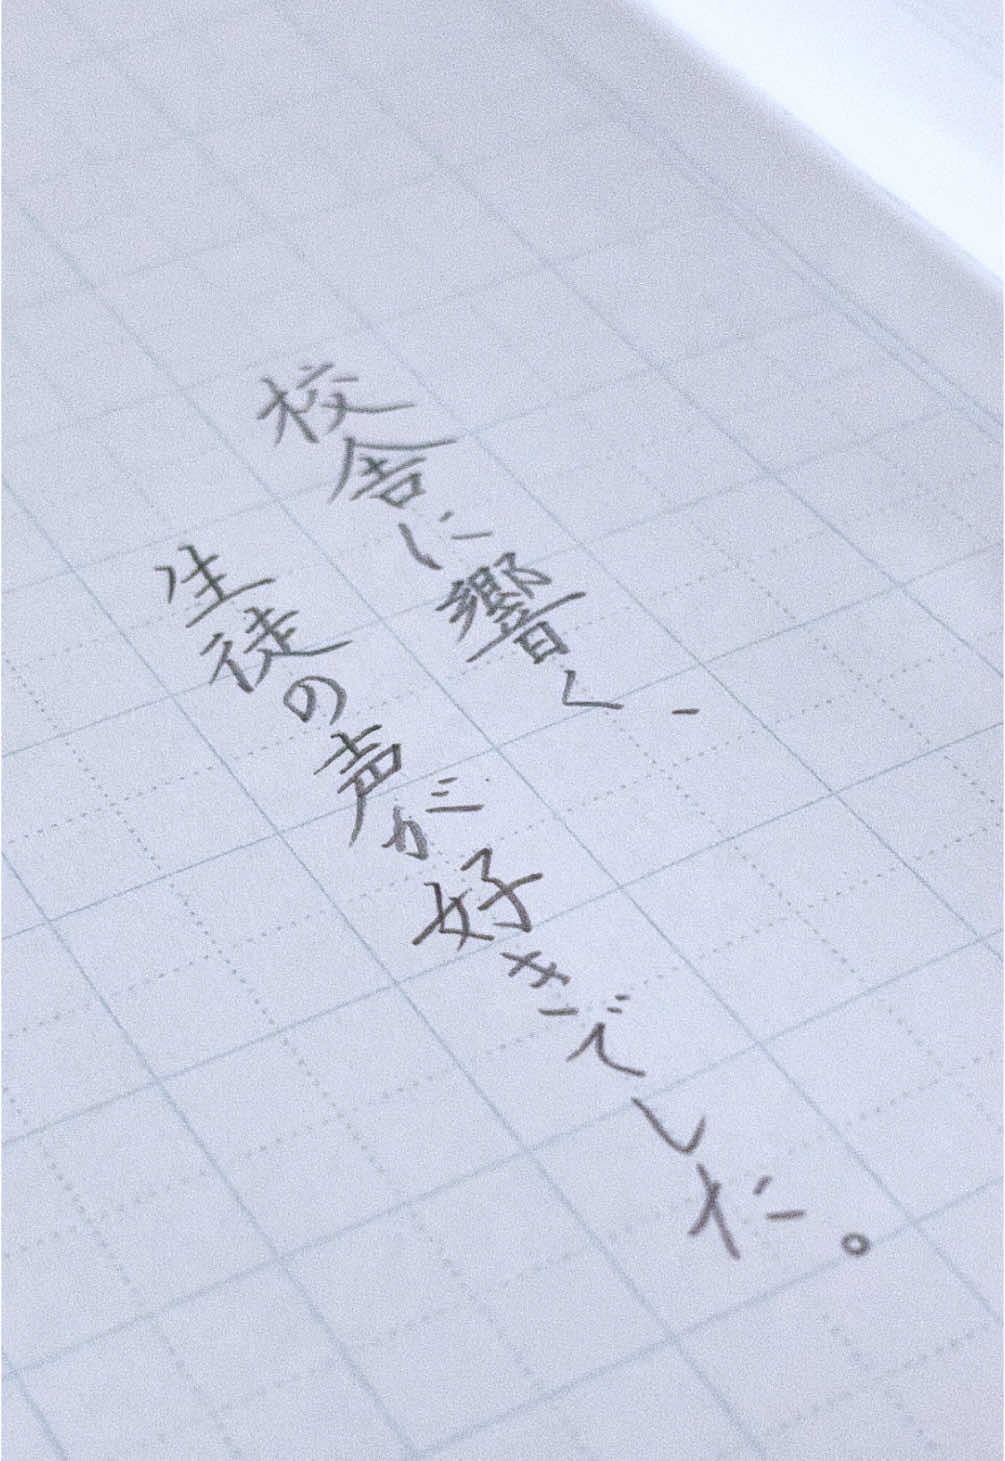 校舎に響く、
生徒の声が好きでした。